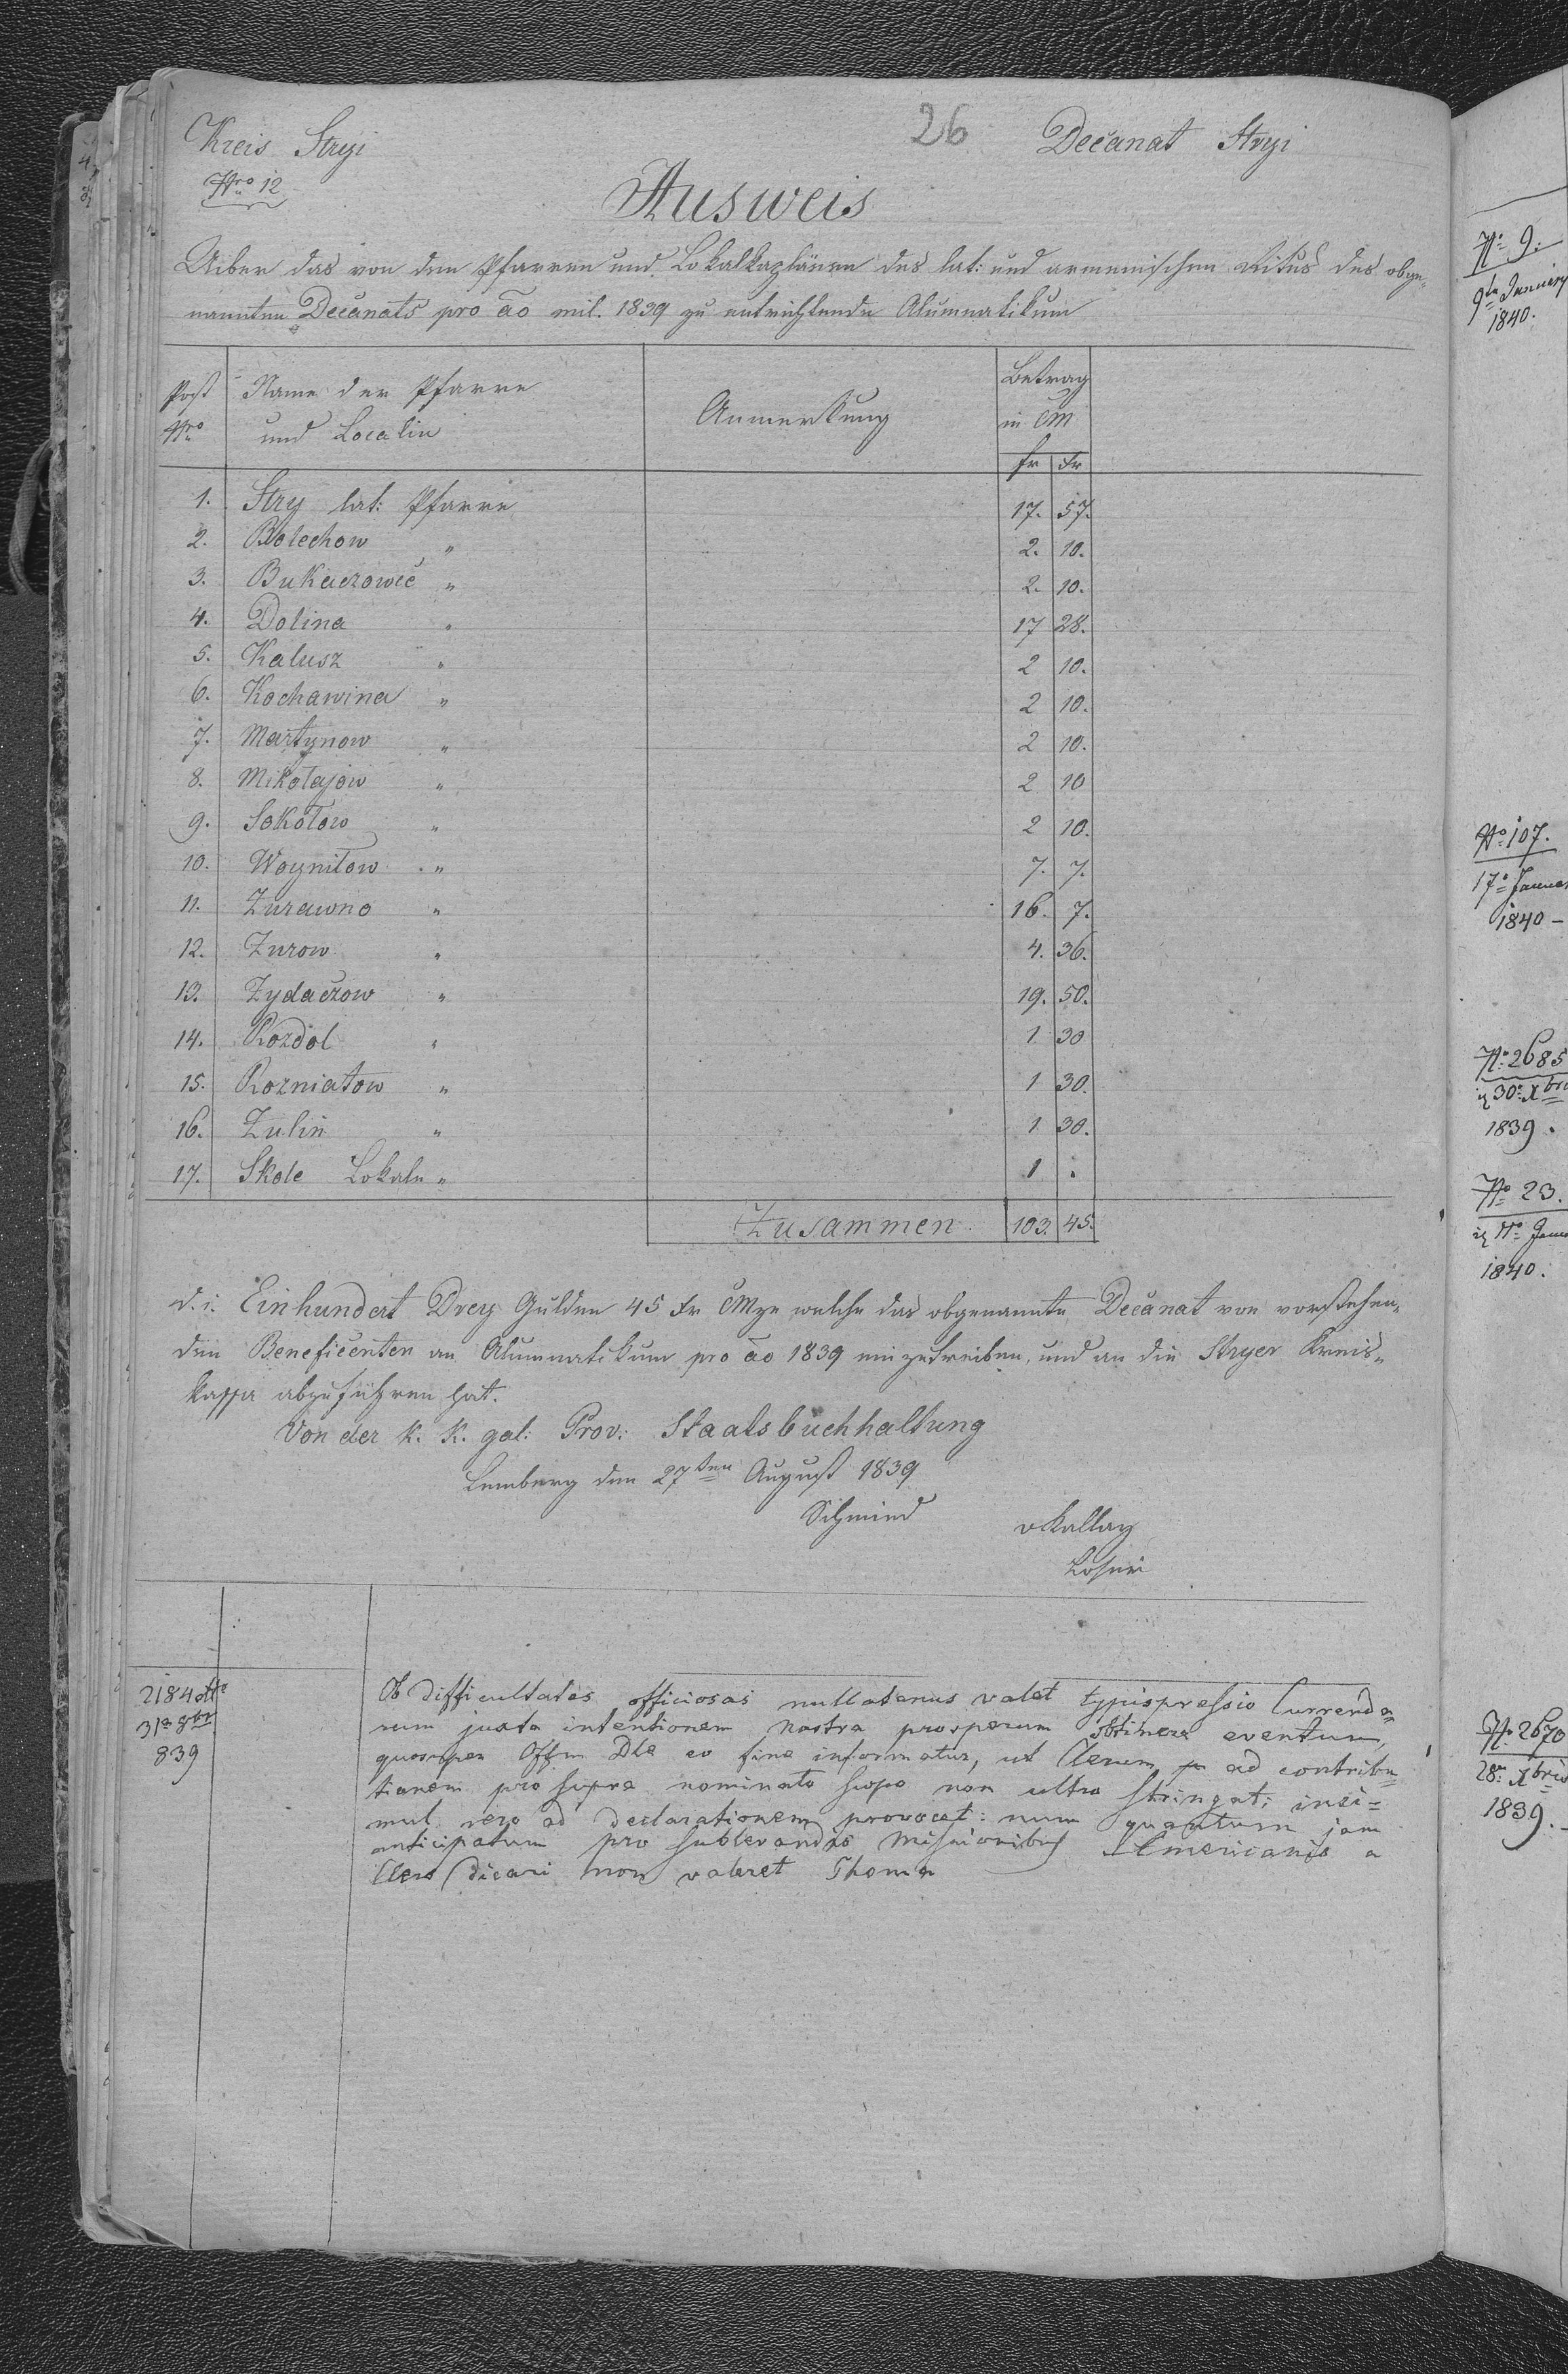 26
Kreis Stryi Decanat Stryi
Nro 12
Ausweis
Uiber das von den Pfarren und Lokalkaplänen des lat: und armenischen Ritus des obge-
nannten Decanats pro ao mil. 1839 zu entrichtende Alumnatikum
Post Nro Name der Pfarre und Localin Anmerkung Betrag in CM
fr xr
1. Stry lat: Pfarre 17. 57.
2. Bolechow " 2. 10.
3. Bukaczowce " 2. 10.
4. Dolina " 17 28.
5. Kalusz " 2 10.
6. Kochawina " 2 10.
7. Martynow " 2 10.
8. Mikołajow " 2 10
9. Sokołow " 2 10.
10. Woyniłow " 7. 7.
11. Zurawno " 16. 7.
12. Zurow " 4. 36.
13. Zydaczow " 19. 50.
14. Rozdol " 1 30
15. Rozniatow " 1 30.
16. Zulin " 1 30.
17. Skole Lokaln " 1 .
Zusammen 103. 45.
d. i. Einhundert Drey Gulden 45 xr CMze welche das obgenannte Decanat von vorstehen-
den Beneficenten an Alumnatikum pro ao 1839 einzutreiben, und an die Stryer Kreis-
kassa abzuführen hat.
Von der k. k. gal: Prov: Staatsbuchhaltung
Lemberg den 27ten August 1839
Schmied vKallay
2184
31a 8br
839
Ob difficultates officiosas nullatenus valet typispressio Currenda-
rum juxta intentionem nostra prosperum obtinere eventum,
quosuper Offm Dle eo fine informatur, ut Clerum ad contribu-
tionem pro supra nominato scopo non ultra stringat; insi=
mul vero ad declarationem provocet: num quantum jam
anticipatum pro sublevandis Missionibus Americanis a
Clero dicari non valeret Thoma
No 9.
9ta January
1840.
No 107.
17a Januar
1840 –
No 2685
30a Xbris
1839.
No 23.
1840.
No 2670
28a Xbris
1839.